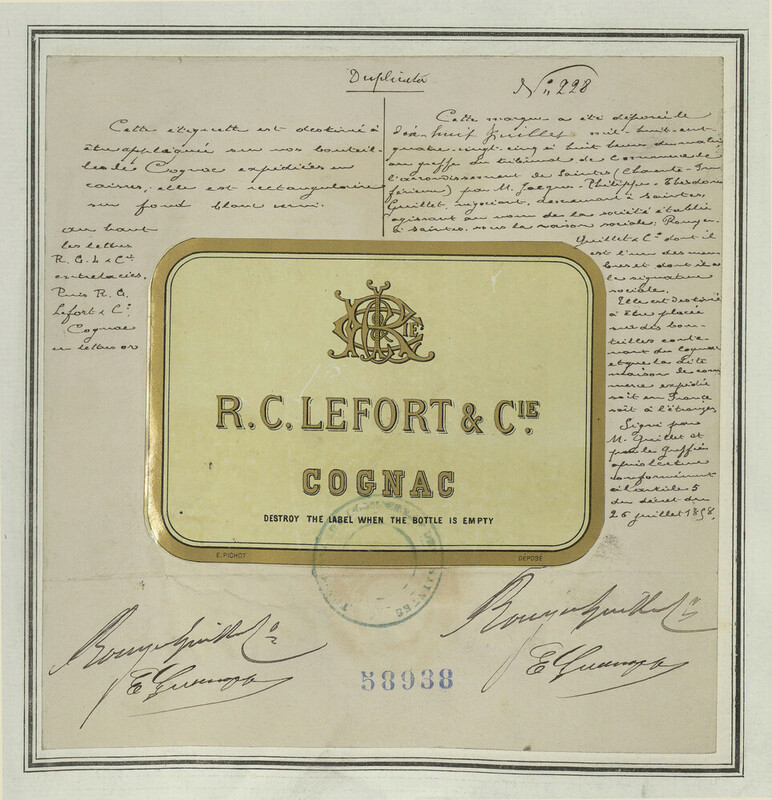 Duplicata
N° 228
Cette étiquette est destinée à
être appliquée sur nos bouteil-
les de Cognac expédiées en
caisses; elle est rectangulaire
sur fond blanc verni.
au haut
les lettres
R. C. L & Cie
entrelacées.
Puis R. C.
Lefort & Cie
Cognac
en lettres or
Cette marque a été déposée le
dix huit Juillet mil-huit-cent
quatre-vingt-cinq à huit heures du matin
au greffe du tribunal de Commerce de
l'arrondissement de Saintes (Charente-In
férieure) par M. Jacques-Philippe-Théodore
Guillet, négociant, demeurant à Saintes,
agissant au nom de la société établie
à Saintes, sous la raison sociale; Rouyer-
Guillet & Cie dont il
est l'un des mem-
bres et dont il a
la signature
sociale.
Elle est destinée
à être placée
sur des bou-
teilles conte-
nant du Cognac
et que la dite
maison de com-
merce expédie
soit en France
soit à l'étranger
Signé par
M. Guillet et
par le greffier
après lecture
conformément
à l'article 5
du décret du
26 juillet 1858.
RCL & CIE
R. C. LEFORT & CIE.
COGNAC
DESTROY THE LABEL WHEN THE BOTTLE IS EMPTY
E. PICHOT
DÉPOSÉ
DE SAINTES
Rouyer Guillet Cie
Rouyer Guillet Cie
58938